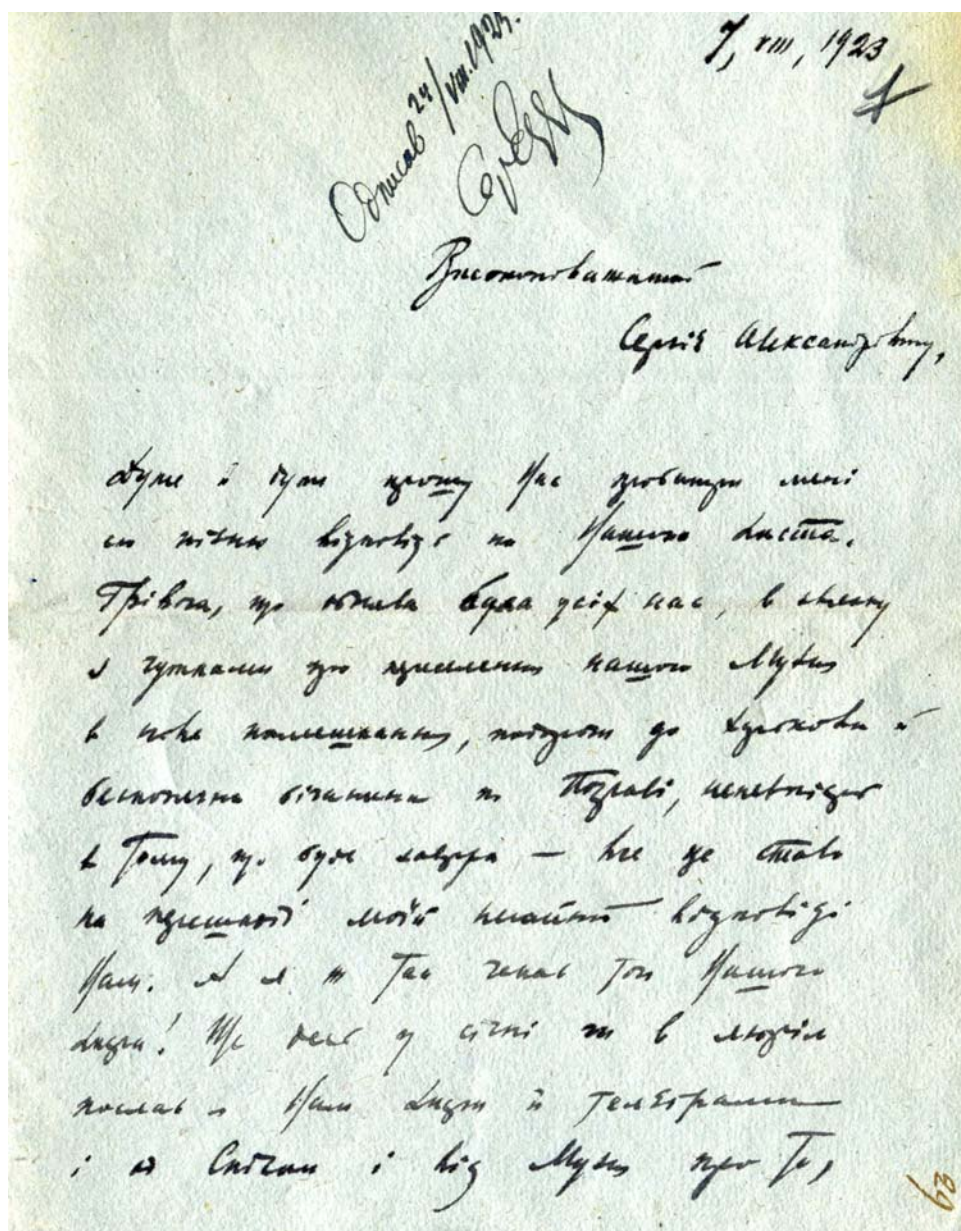 7, VIII, 1923
1
Одписав 24/VIII.1923.
Високоповажаний
Сергіє Александровичу,
Дуже й дуже прошу Вас пробачити мені
за пізню відповідь на Вашого листа.
Трівога, що обняла була усіх нас, в звязку
з чутками про приселення нашого Музея
в нове помешкання, подорож до Харькова й
безконечна біганина по Полтаві, непевність
в тому, що буде завтра — все це стало
на перешкоді моїй негайній відповіді
Вам. А я ж так чекав того Вашого
листа! Ще десь у січні чи в лютім
послав я Вам листа й телеграми
і од Спілки і від Музея про те,
63